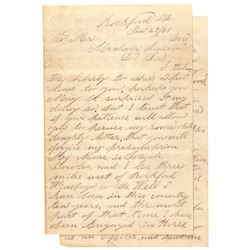 Rockford Ills
Jan 29/61
To Mr
Abraham Lincoln
Dr Sir} I take
the Liberty to write a few
lines to you, perhaps you
May be surprised at my
doing so. but I trust that
if your patience will allow
you to peruse my somewhat
lengthy letter, that you will
forgive my presumption
My Name is Joseph
and I live three
miles west of Rockford
Winnebago Co Ills Well I
have been in this country
ten years, and the most
part of that time I have
been Engaged in Horse
as an officer, and